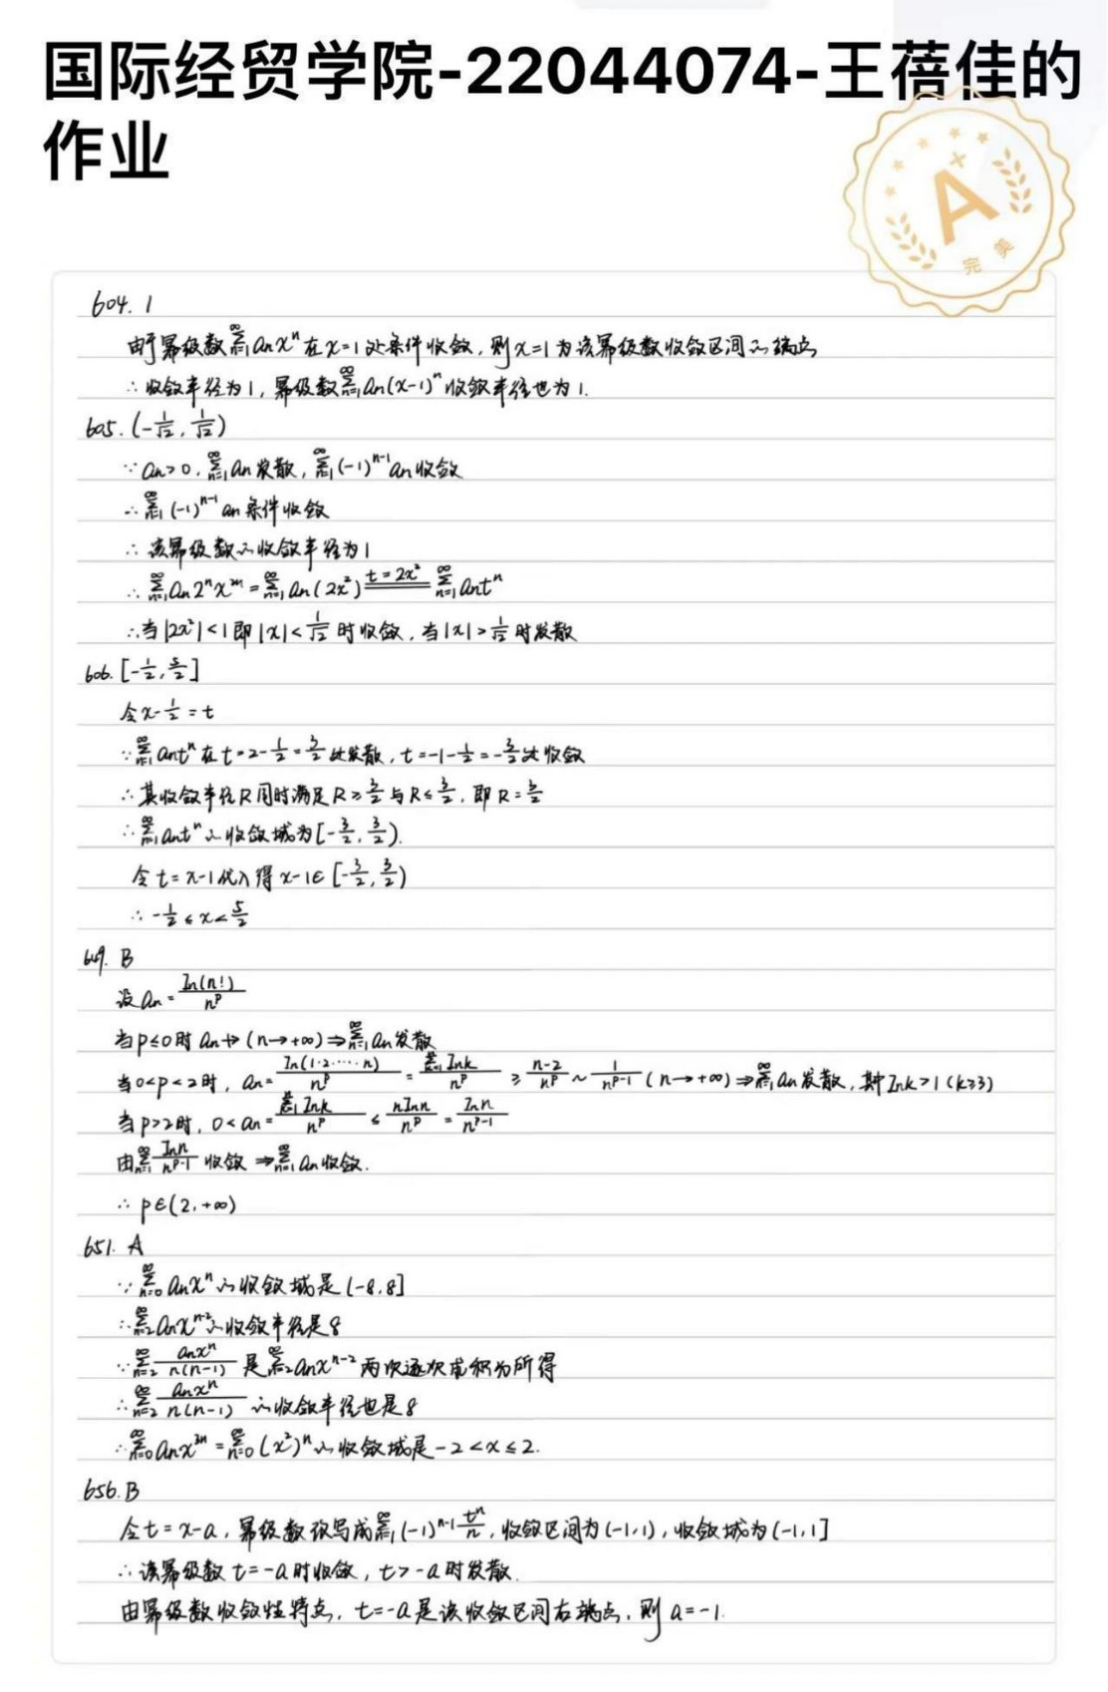 国际经贸学院-22044074-王蓓佳的
作业
A+
完美
604. 1
由于幂级数∑_{n=1}^∞ anxⁿ在x=1处条件收敛,则x=1为该幂级数收敛区间的端点
∴收敛半径为1,幂级数∑_{n=1}^∞ an(x-1)ⁿ收敛半径也为1.
605. (-1/√2, 1/√2)
∵an>0, ∑_{n=1}^∞ an发散, ∑_{n=1}^∞ (-1)^{n-1}an收敛
∴∑_{n=1}^∞ (-1)^{n-1} an条件收敛
∴该幂级数的收敛半径为1
∴∑_{n=1}^∞ an2ⁿx²ⁿ=∑_{n=1}^∞ an(2x²) t=2x² ∑_{n=1}^∞ antⁿ
∴当|2x²|<1即|x|<1/√2时收敛,当|x|>1/√2时发散
606. [-1/2, 5/2]
令x-1/2=t
∵∑_{n=1}^∞ antⁿ在t=2-1/2=3/2处发散, t=-1-1/2=-3/2处收敛
∴其收敛半径R同时满足R≥3/2与R≤3/2,即R=3/2
∴∑_{n=1}^∞ antⁿ的收敛域为[-3/2, 3/2).
令t=x-1代入得x-1∈[-3/2, 3/2)
∴-1/2≤x<5/2
649. B
设an=ln(n!)/n^p
当p≤0时an↛(n→+∞)⇒∑_{n=1}^∞ an发散
当0<p<2时, an=ln(1·2·····n)/n^p=∑_{k=1}^n lnk/n^p≥(n-2)/n^p~1/n^{p-1}(n→+∞)⇒∑_{n=1}^∞ an发散,其中lnk>1(k≥3)
当p>2时, 0<an=∑_{k=1}^n lnk/n^p≤nlnn/n^p=lnn/n^{p-1}
由∑_{n=1}^∞ lnn/n^{p-1}收敛⇒∑_{n=1}^∞ an收敛.
∴p∈(2,+∞)
651. A
∵∑_{n=0}^∞ anxⁿ的收敛域是(-8,8]
∴∑_{n=2}^∞ anx^{n-2}的收敛半径是8
∵∑_{n=2}^∞ anxⁿ/n(n-1)是∑_{n=2}^∞ anx^{n-2}两次逐次求积分所得
∴∑_{n=2}^∞ anxⁿ/n(n-1)的收敛半径也是8
∴∑_{n=0}^∞ anx³ⁿ=∑_{n=0}^∞ (x³)ⁿ的收敛域是-2<x≤2.
656. B
令t=x-a,幂级数改写成∑_{n=1}^∞ (-1)^{n-1}tⁿ/n,收敛区间为(-1,1),收敛域为(-1,1]
∴该幂级数t=-a时收敛, t>-a时发散.
由幂级数收敛性特点, t=-a是该收敛区间右端点,则a=-1.